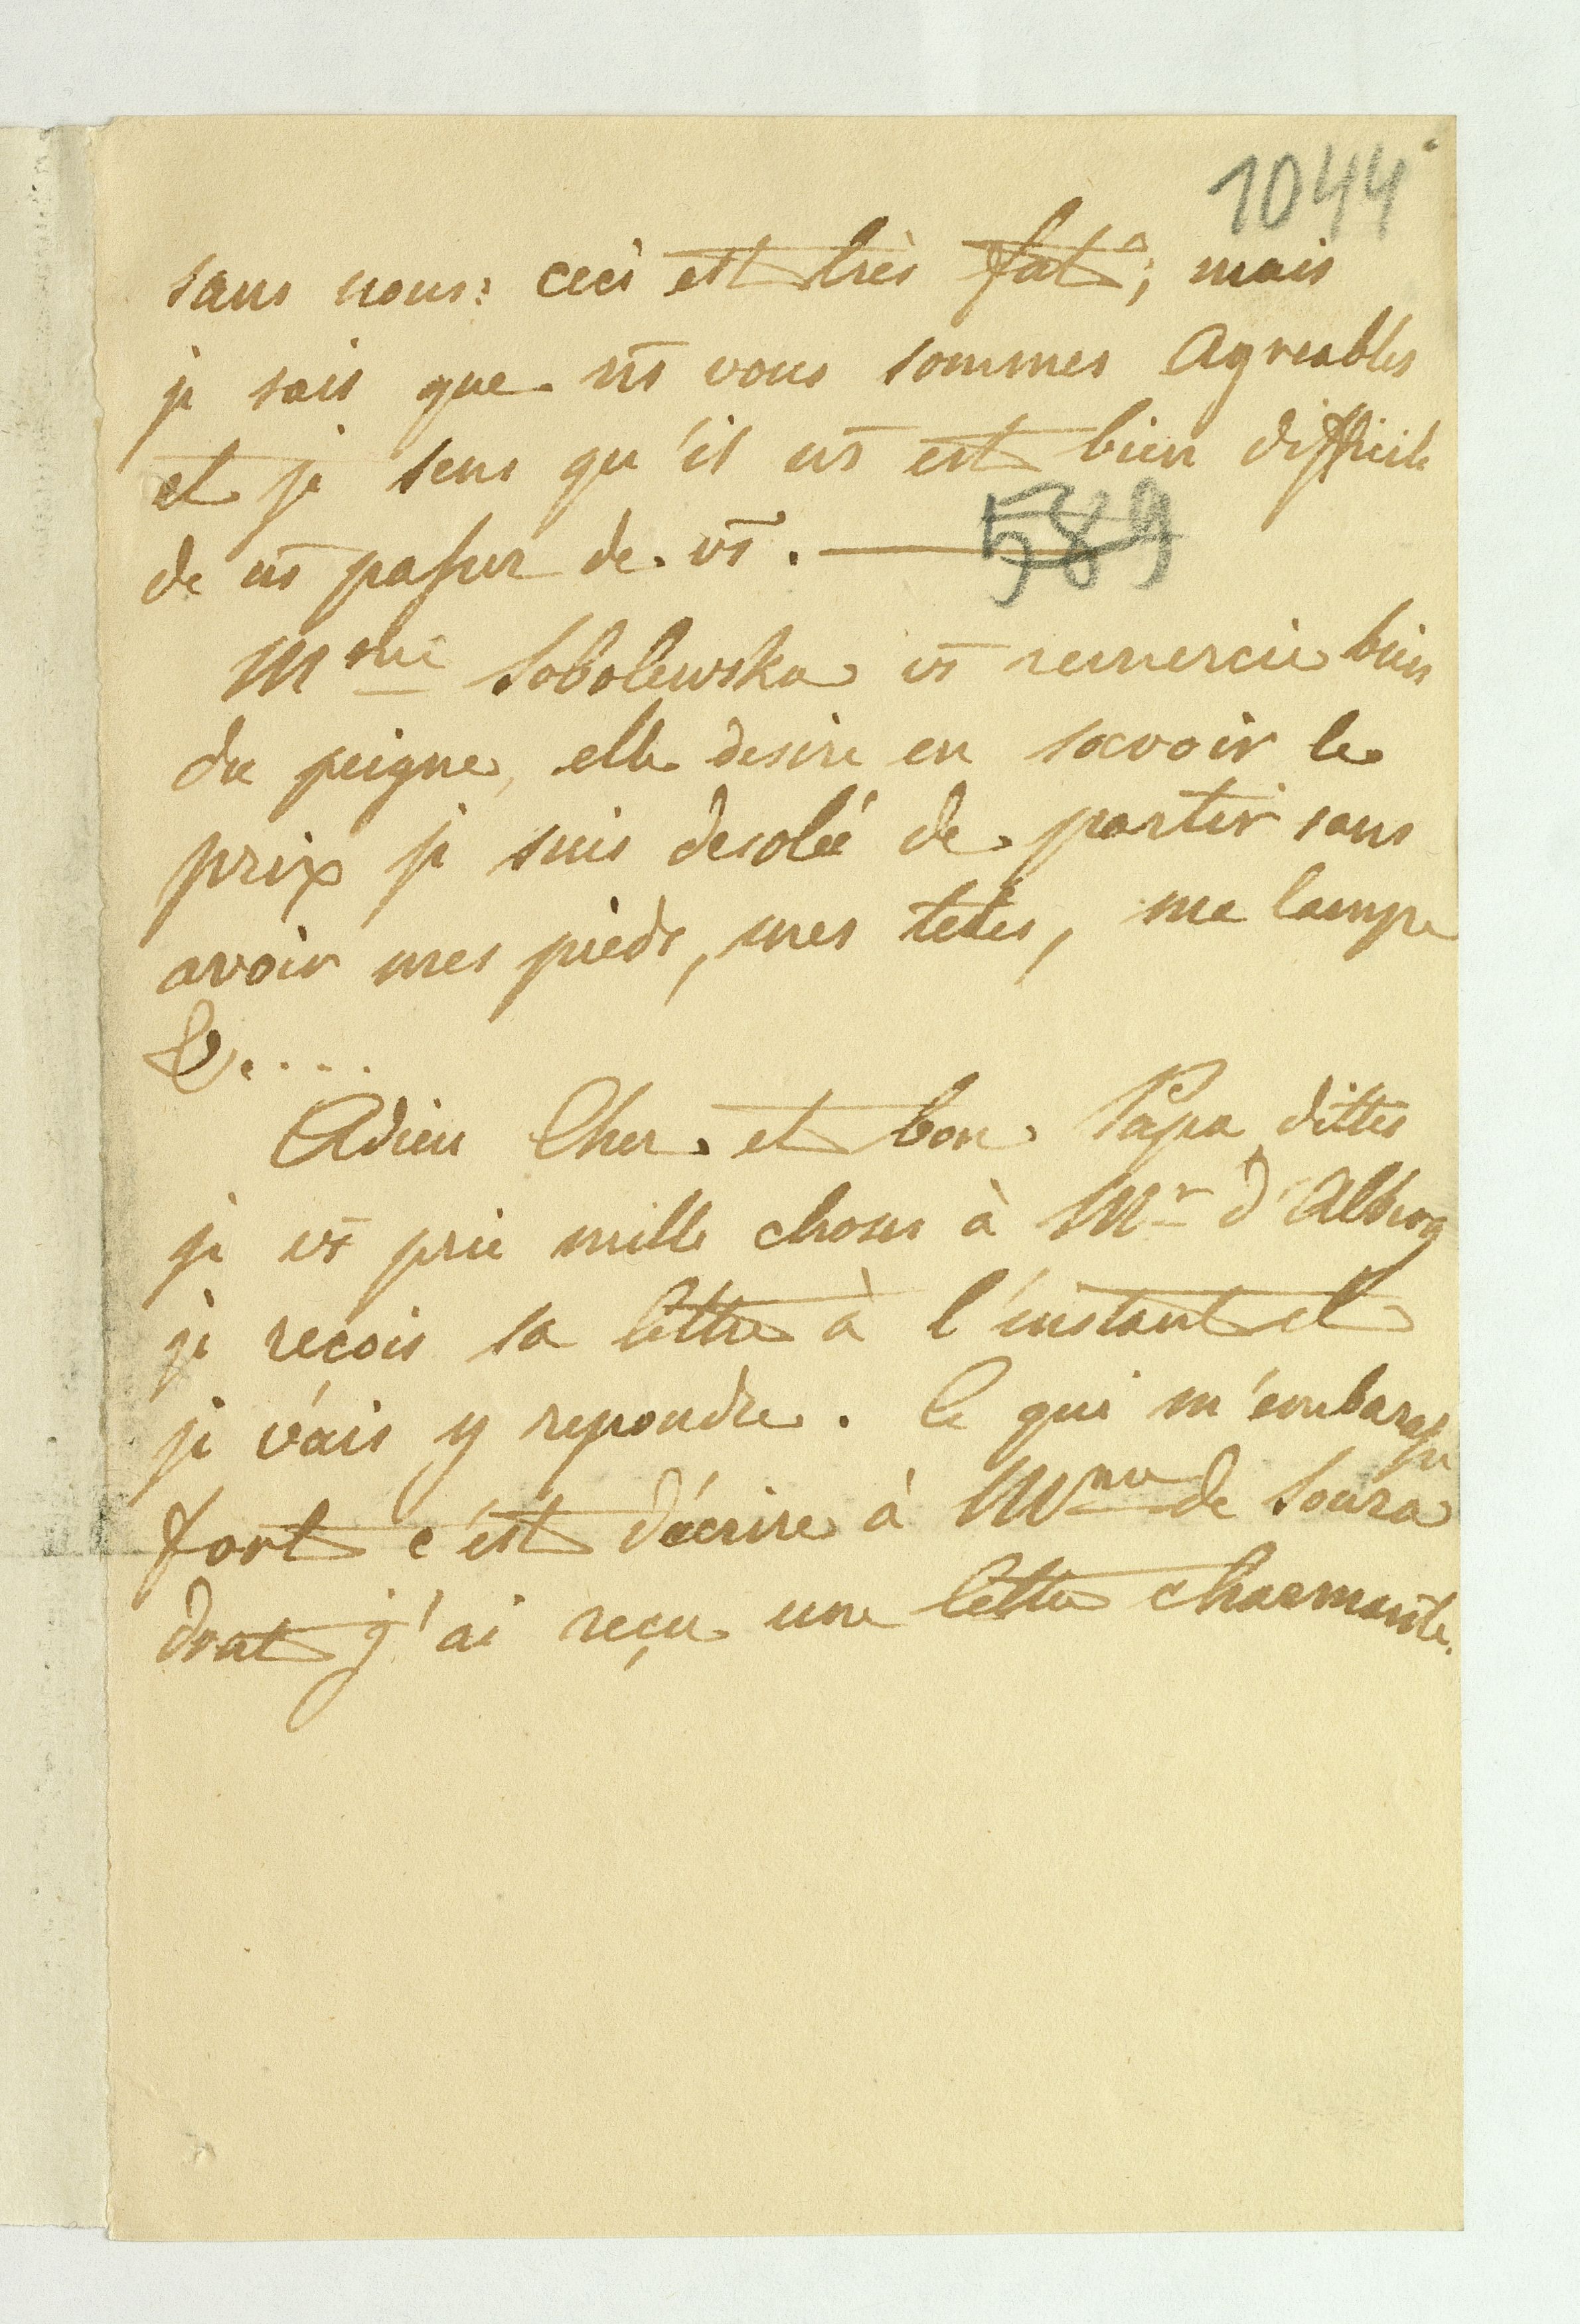 1044
sans nous: ceci est très fat; mais
je sais que n̄s vous sommes Agreables
et je sens qu'il n̄s est bien difficile
de n̄s passer de v̄s. —
589
Mme Sobolewska v̄s remercie bien
du peigne, elle desire en savoir le
prix je suis desolée de partir sans
avoir mes pieds, mes têtes, ma lampe
&....
Adieu Cher et bon Papa dittes
je v̄s prie mille choses à Mr d'
je reçois sa lettre à l'instant et
je vais y repondre. Ce qui m'embarasse
fort c'est d'écrire à Mme de Souza
dont j'ai reçu une lettre charmante.